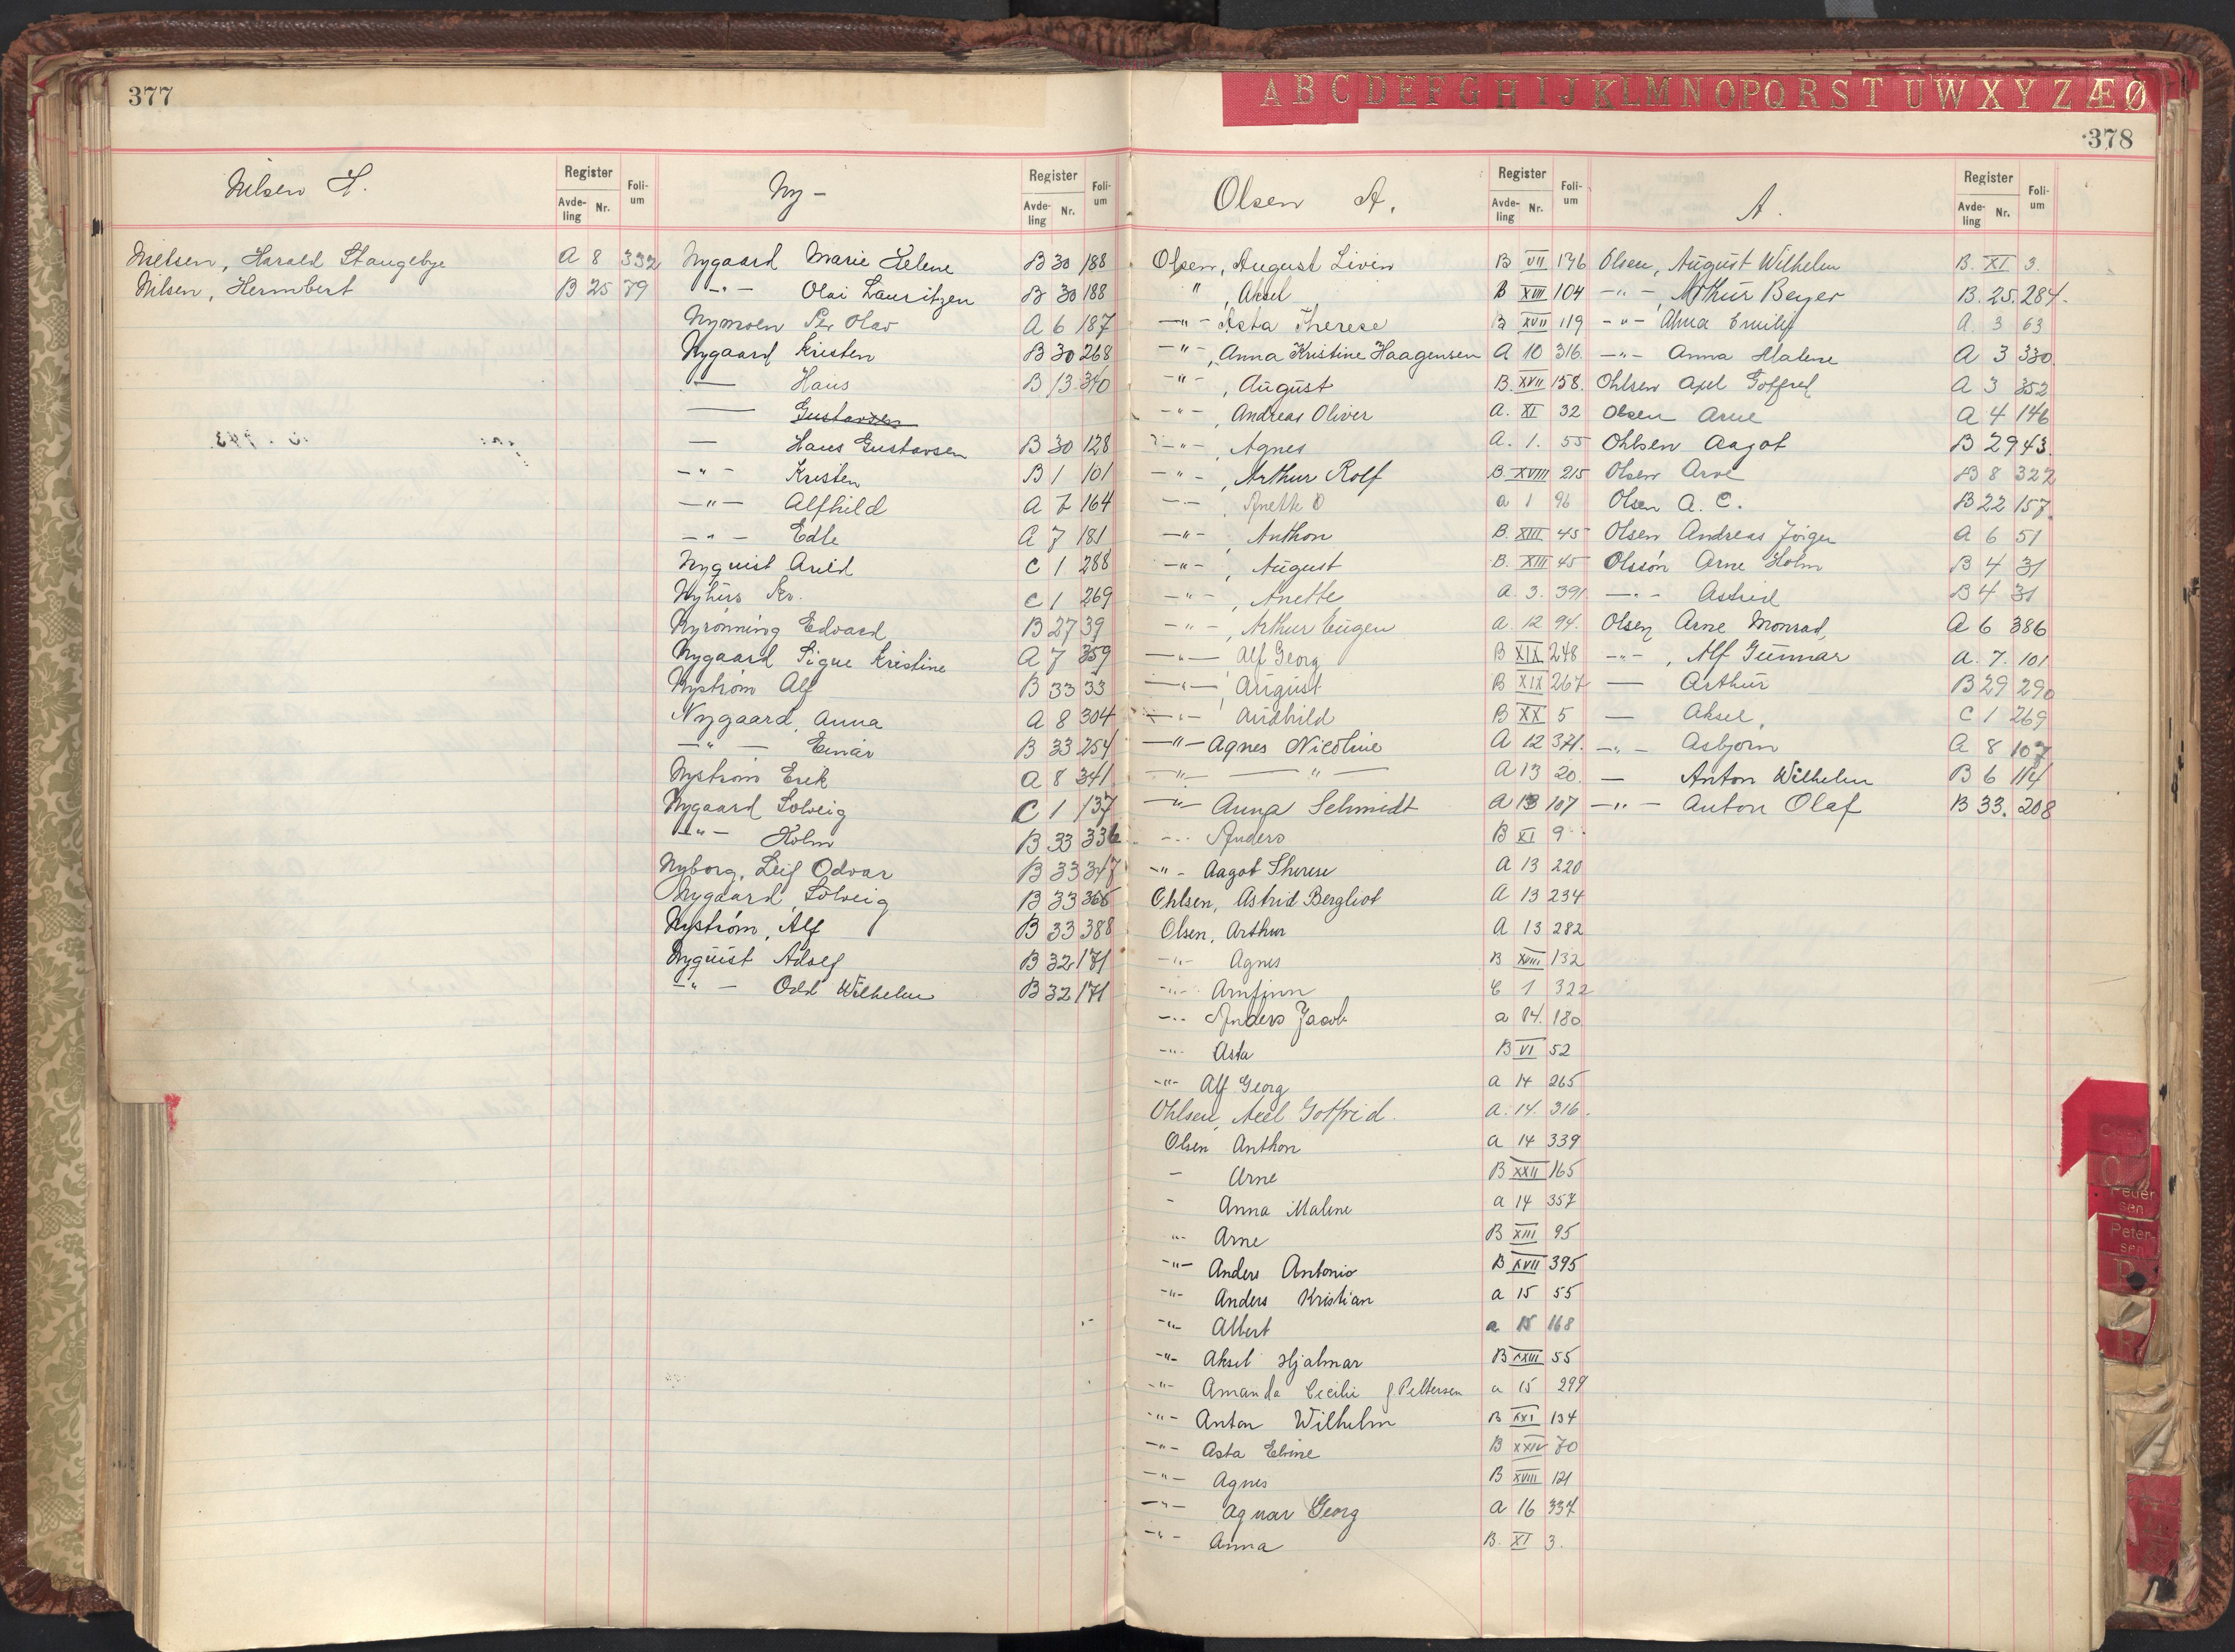 377
Nilsen H.
Register
Avde-
ling
Nr.
Foli-
um
Nielsen, Harald Stangebye A 8 332
Nilsen, Hermbert B 25 79
Ny-
Register
Avde-
ling
Nr.
Foli-
um
Nygaard Marie Helene B 30 188
-"- Olai Lauritzen B 30 188
Nymoen Per Olav A 6 187
Nygaard Kristen B 30 268
— Hans B 13 340
— Gustavsen
— Hans Gustavsen B 30 128
-"- Kristen B 1 101
-"- Alfhild A 7 164
-"- Edle A 7 181
Nyquist Arild C 1 288
Nyhus Kr. C 1 269
Nyrönning Edvard B 27 39
Nygaard Signe Kristine A 7 359
Nyström Alf B 33 33
Nygaard, Anna A 8 304
-"- Einar B 33 254
Nyström Erik A 8 341
Nygaard Solveig C 1 137
-"- Holm B 33 336
Nyborg, Leif Odvar B 33 347
Nygaard, Solveig B 33 366
Nyström, Alf B 33 388
Nyquist Adolf B 32 171
-"- Odd Wilhelm B 32 171
A B C D E F G H I J K L M N O P Q R S T U W X Y Z Æ Ø
378
Olsen A.
Register
Avde-
ling
Nr.
Foli-
um
Olsen, August Livin B VII 136
" , Aksel B XVII 104
-"- Asta Therese B XVII 119
-"-, Anna Kristine Haagensen A 10 316
-"-, August B. XVII 158.
-"-, Andreas Oliver A. XI 32
-"-, Agnes A. 1. 55
-"-, Arthur Rolf B. XVIII 215
-"-, Anette O a 1 96
-"-, Anthon B. XIII 45
-"-, August B. XIII 45
-"-, Anette A. 3. 391
-"-, Arthur Eugen A 12 94.
-"- Alf Georg B XIX 248
-"-, August B XIX 267
-"- Audhild B XX 5
-"- Agnes Nicoline A 12 371.
-"- -"- A 13 20.
-"- Anna Schmidt A 13 107
-"- Anders B XI 9
-"- Aagot Therese A 13 220
Ohlsen, Astrid Bergliot A 13 234
Olsen, Arthur A 13 282
-"- Agnes B XVIII 132
-"- Arnfinn C 1 322
-"- Anders Jacob a 14. 180
-"- Asta B VI 52
-"- Alf Georg a 14 265
Ohlsen, Axel Gotfrid. a. 14. 316.
Olsen Anthon a 14 339
- Arne B XXII 165
- Anna Malene a 14 357
-"- Arne B XIII 95
-"- Anders Antonio B XVII 395
-"- Anders Kristian a 15 55
-"- Albert a 15 168
-"- Aksel Hjalmar B XXIII 55
-"- Amanda Cecilie f Pettersen a 15 299
-"- Anton Wilhelm B XXI 134
-"- Asta Elvine B XXIV 70
-"- Agnes B XVIII 121
-"- Agnar Georg a 16 337
-"- Anna B. XI 3.
A.
Register
Avde-
ling
Nr.
Foli-
um
Olsen, August Wilhelm B. XI 3.
-"-, Arthur Beyer B. 25. 284.
-"- Alma Emilie A. 3 63
-"- Anna Malene A 3 330
Ohlsen Axel Gotfred A 3 352
Olsen Arne A 4 146
Ohlsen Aagot B 29 43.
Olsen Arve B 8 322
Olsen A. C. B 22 157.
Olsen Andreas Jörgen A 6 51
Olssön Arne Holm B 4 31
-"- Astrid B 4 31
Olsen Arne Monrad, A 6 386
-"-, Alf Gunnar A. 7. 101
— Arthur B 29 290
— Aksel, C 1 269
-"- Asbjörn A 8 107
— Anton Wilhelm B 6 114
-"- Anton Olaf B 33. 208
O
Peder
sen
Peter-
sen
P